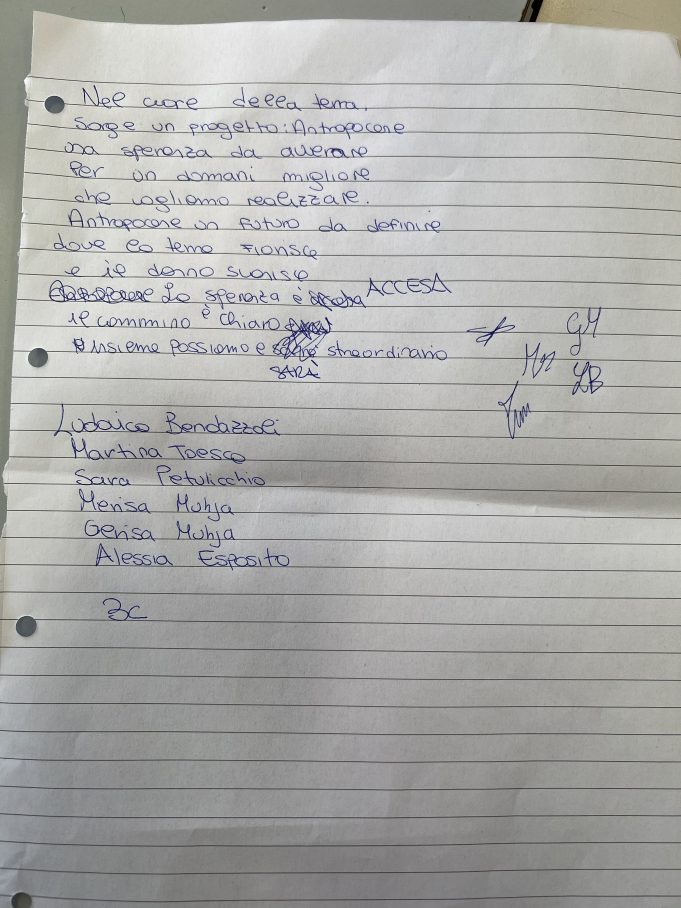 Nel cuore della terra.
Sorge un progetto: Antropocene
una speranza da avverare
Per un domani migliore
che vogliamo realizzare.
Antropocene un futuro da definire
dove la terra fiorisce
e il danno svanisce
La speranza è ACCESA
il cammino è chiaro
insieme possiamo e SARÀ straordinario
GM
LB
Ludovica Bendazzoli
Martina Toesca
Sara Petulicchio
Merisa Muhja
Gerisa Muhja
Alessia Esposito
3C